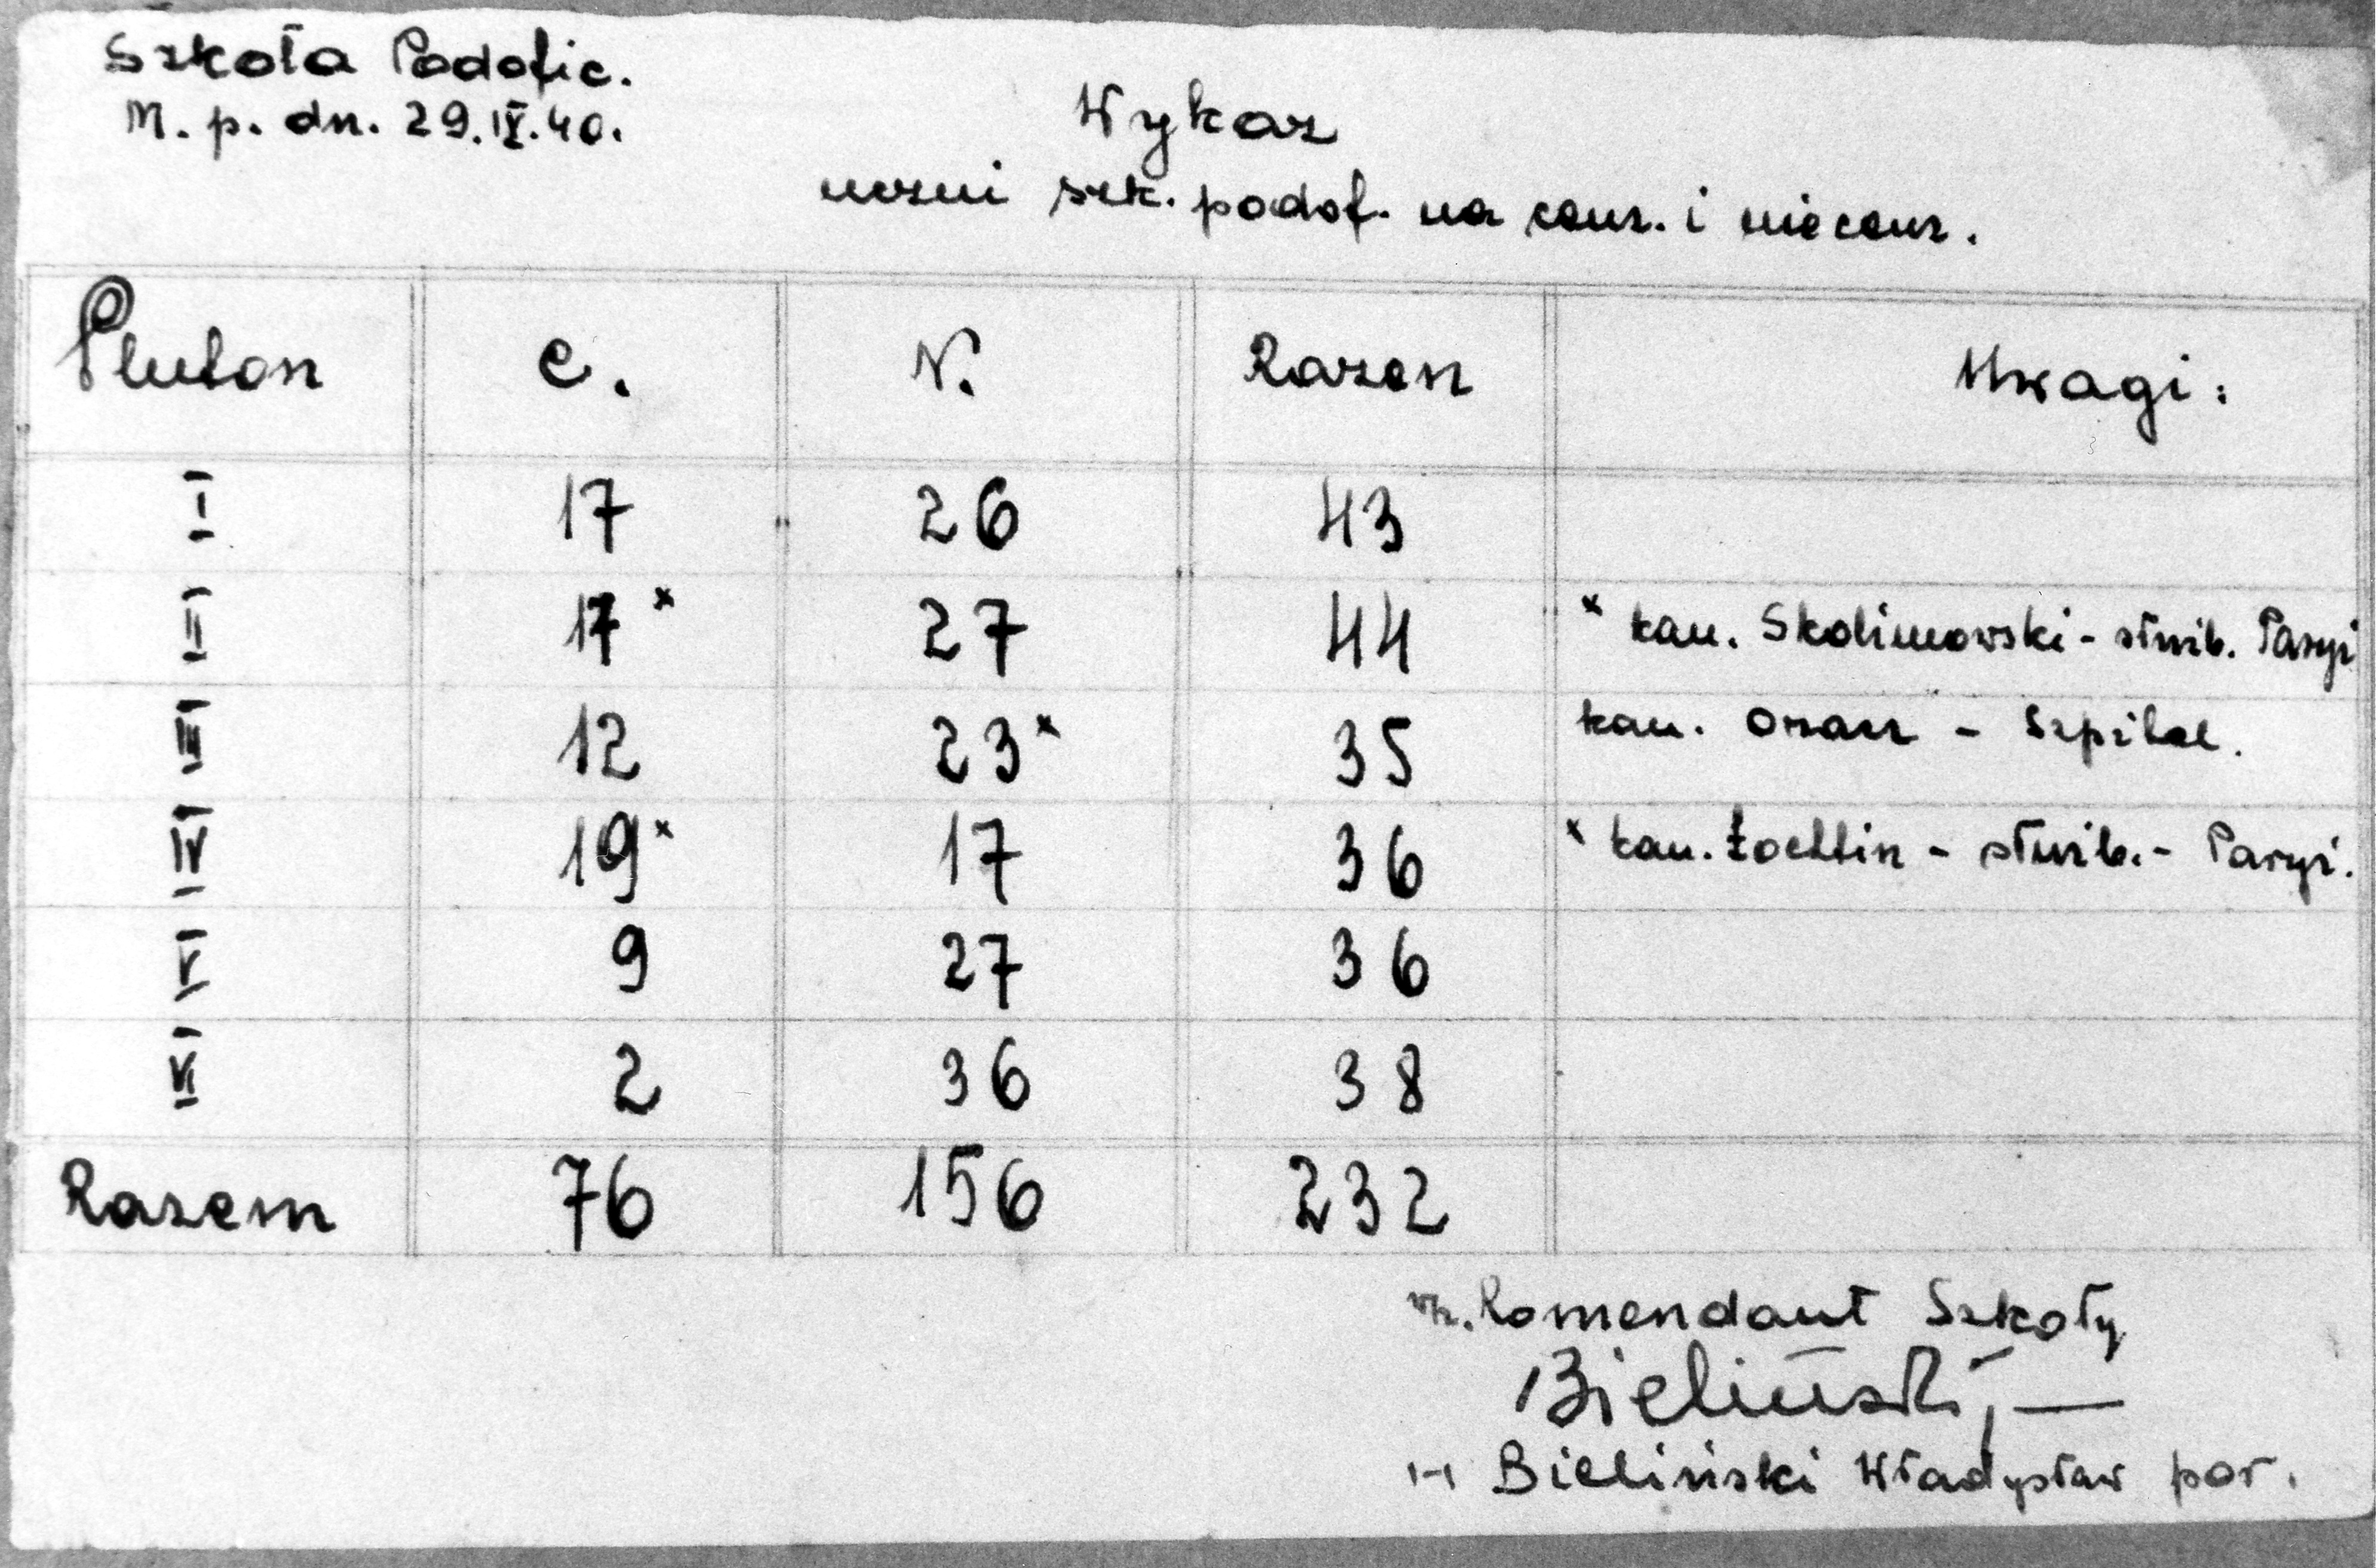 Szkoła Podofic.
M. p. dn. 29.IV.40.
Wykaz
uczni szk. podof. na cenz. i niecenz.
Pluton C. N. Razem Uwagi:
I 17 26 43
II 17x 27 44 x kan. Skolimowski - służb. Paryż
III 12 23x 35 kan. - Szpital.
IV 19x 17 36 x kan. - służb. - Paryż.
V 9 27 36
VI 2 36 38
Razem 76 156 232
Komendant Szkoły
Bieliński
Bieliński Władysław por.